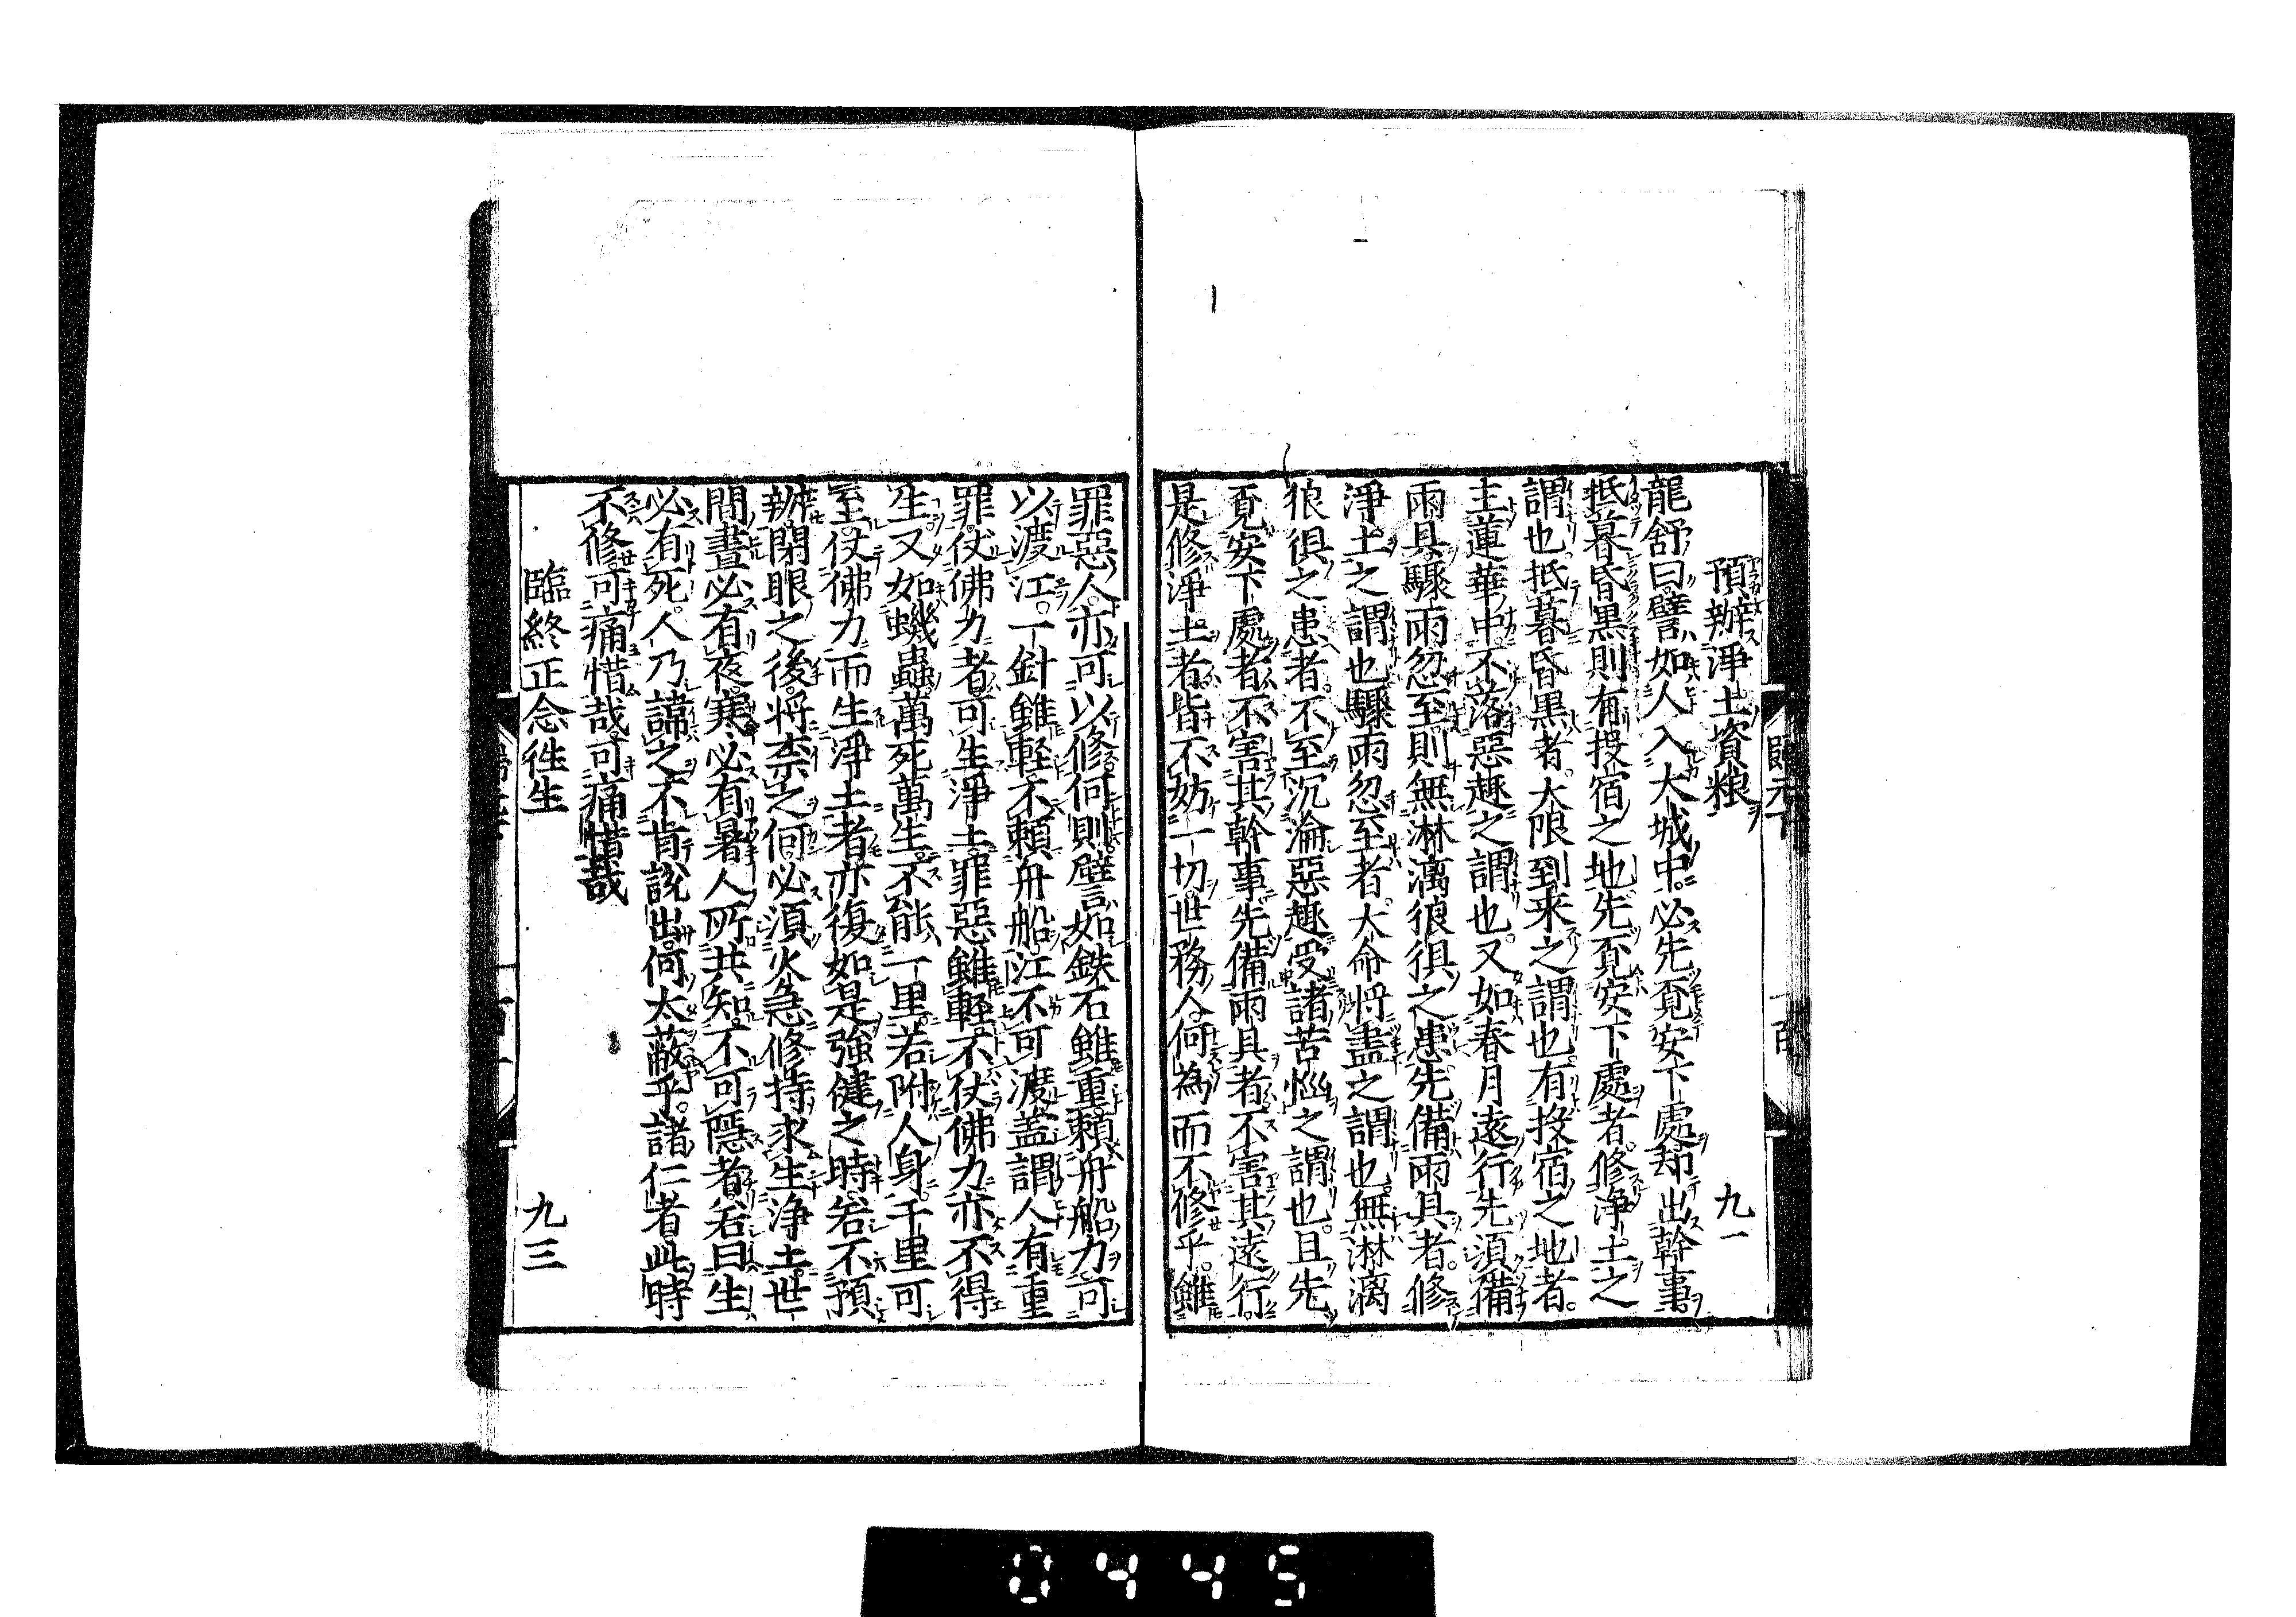 預辦淨土資粮 九一
龍舒曰譬如人入大城中必先覔安下處却出幹事
抵暮昏黒則有投宿之地先覔安下處者修淨土之
謂也抵暮昏黒者大限到来之謂也有投宿之地者
主蓮華中不落惡趣之謂也又如春月遠行先須備
雨具驟雨忽至則無淋漓狼㹷之患先備雨具者修
淨土之謂也驟雨忽至者大命將盡之謂也無淋漓
狼㹷之患者不至沉淪惡趣受諸苦惱之謂也且先
覔安下處者不害其幹事先備雨具者不害其遠行
是修淨土者皆不妨一切世務人何為而不修乎雖
罪惡人亦可以修何則譬如鉄石雖重賴舟船力可
以渡江一針雖軽不賴舟船江不可渡盖謂人有重
罪仗佛力者可生淨土罪惡雖軽不仗佛力亦不得
生又如蟣蟲萬死萬生不能一里若附人身千里可
至仗佛力而生淨土者亦復如是強健之時若不預
辦閉眼之後將柰之何必須火急修持求生淨土世
間晝必有夜寒必有暑人所共知不可隠者若曰生
必有死人乃諱之不肯說出何太蔽乎諸仁者此時
不修可痛惜哉可痛惜哉
臨終正念徃生 九三
0445